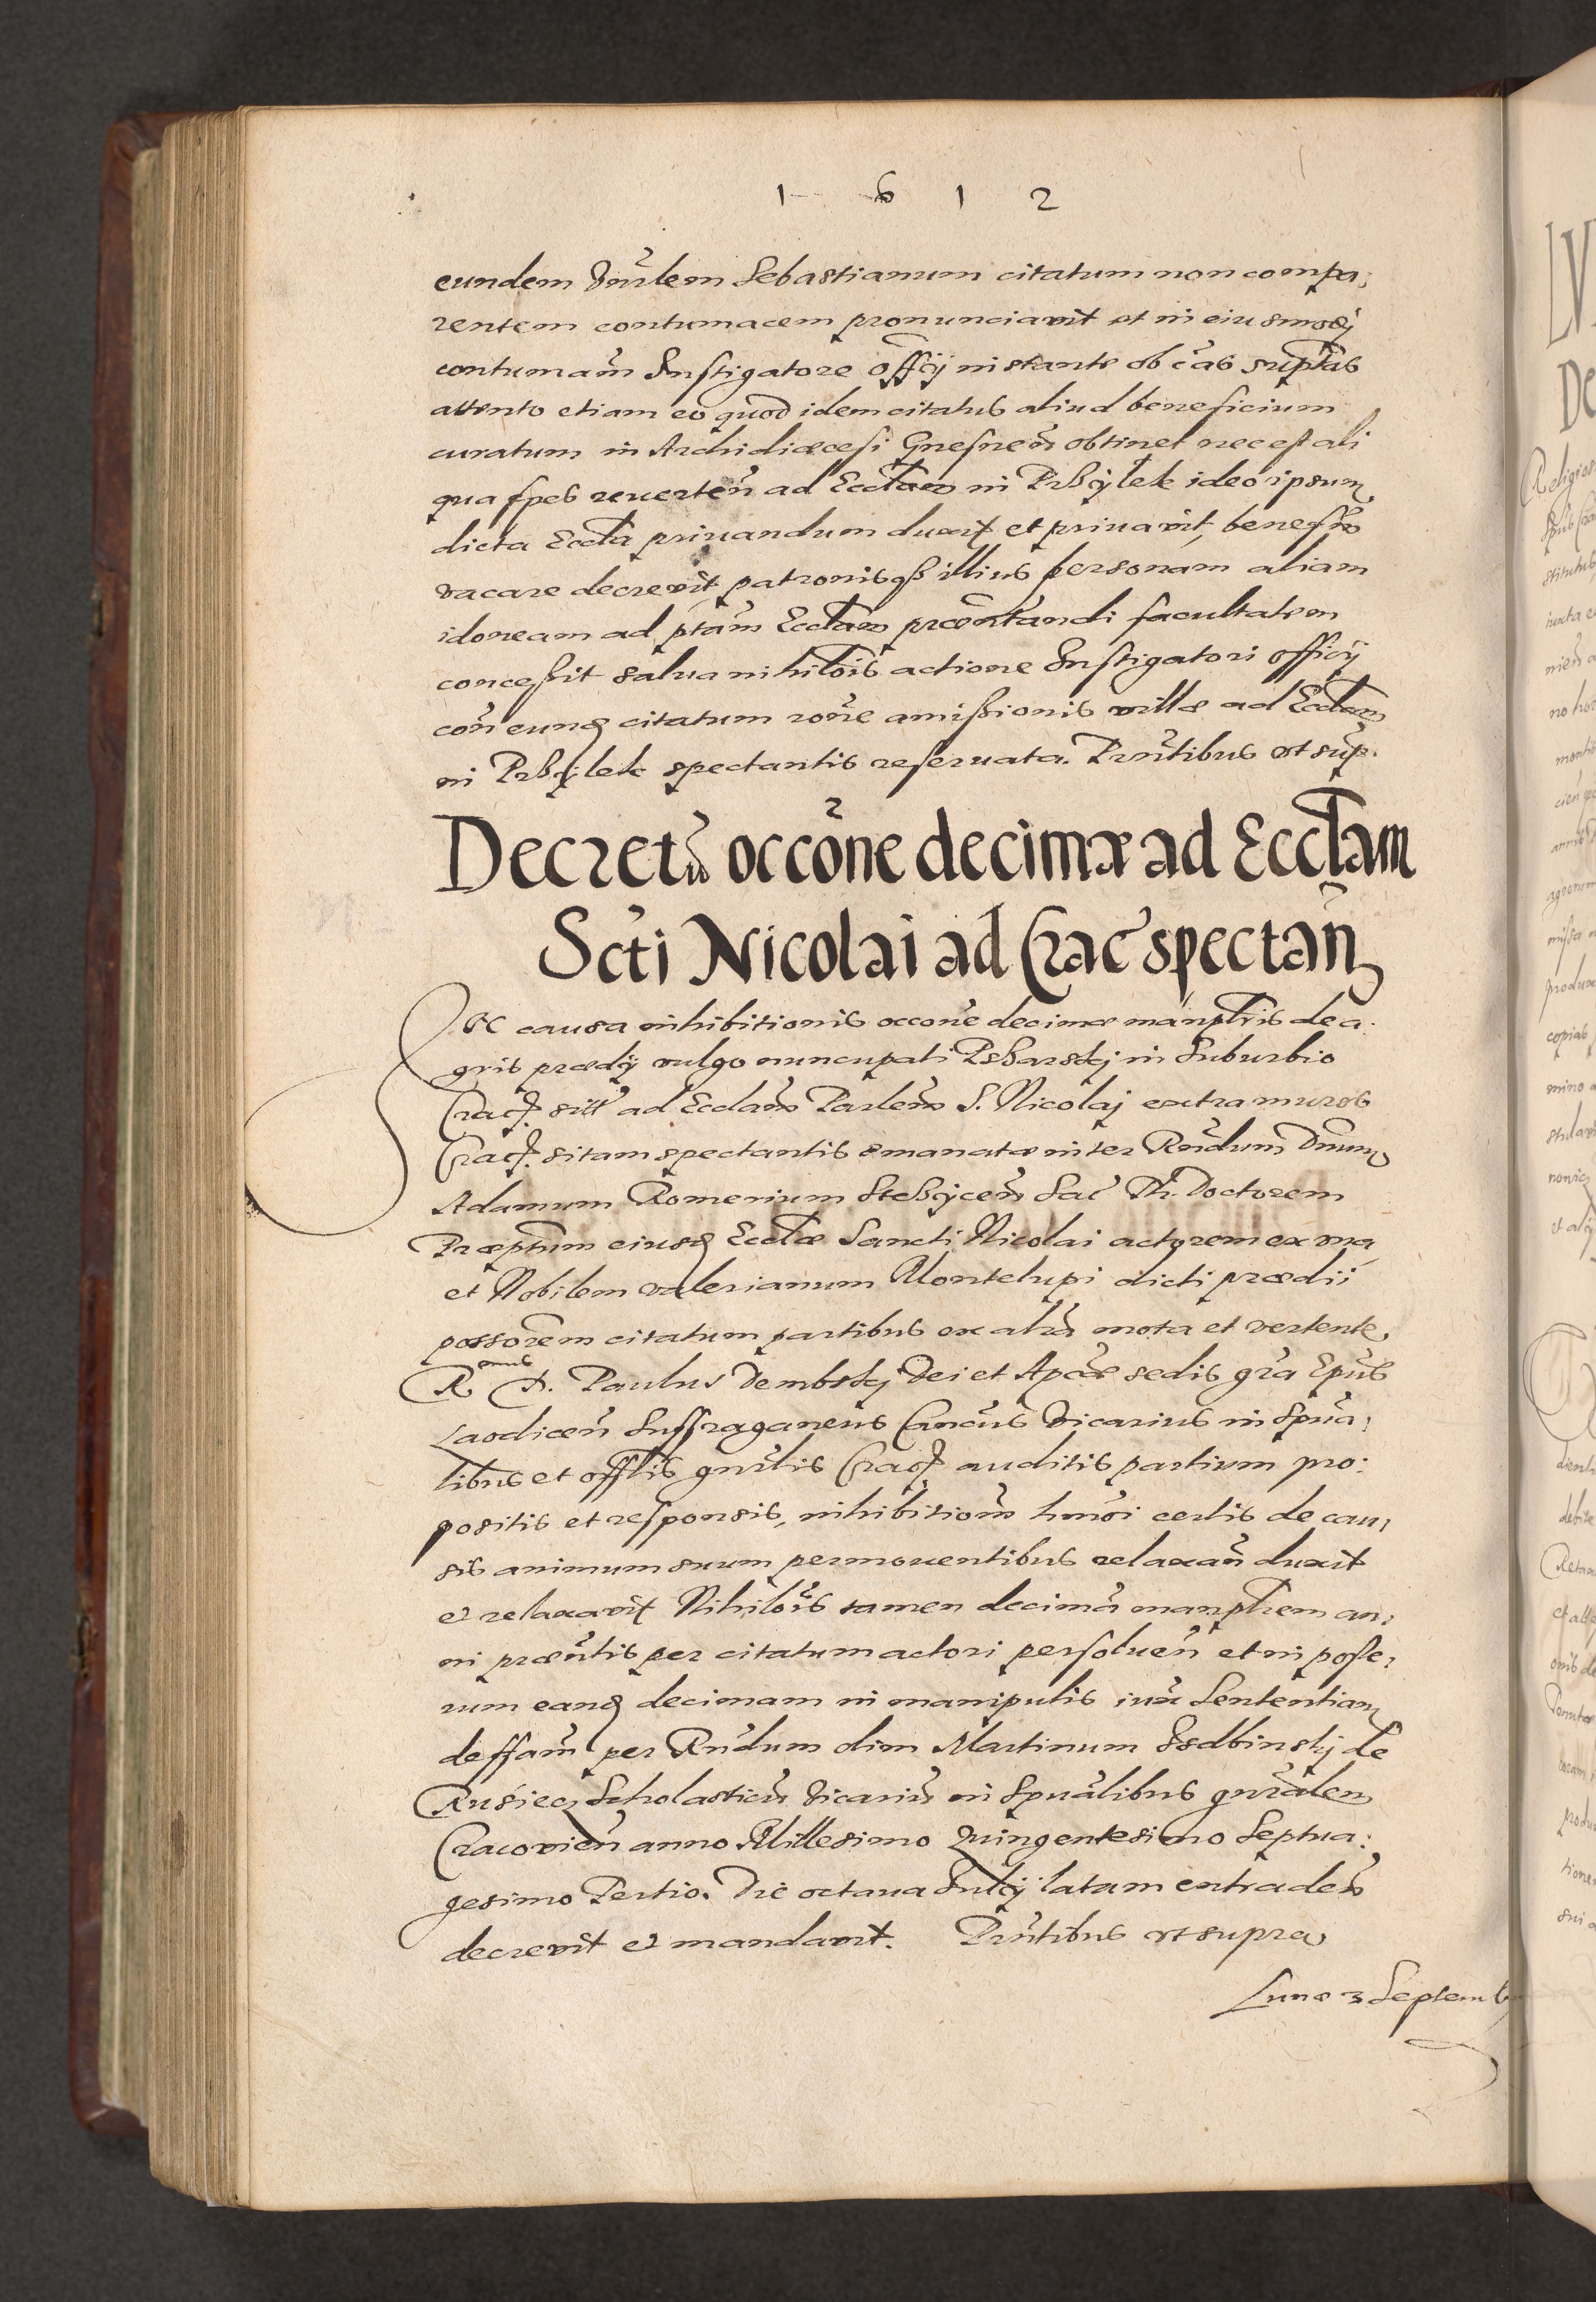 1 6 1 2
eundem Vnrlem Sebastianum citatum non compa:
rentem contumacem pronunciauit et in eiusmodj
contumam̃ Instigatore officij instante ob cãs suptas
attento etiam eo quod idem citatus aliud beneficium
curatum in Archidiœcesi Gnesneñ obtinet nec est ali
qua spes reuerteñ ad Ecctam in Przÿlek ideo ipsum
dicta Eccta priuandum duxit et priuauit, beneficiũ
vacare decreuit patronisqß illius personam aliam
idoneam ad ptam̃ Ecctam præntandi facultatem
concessit salua nihilois actione Instigatori officij
coñ eund citatum rone amissionis villæ ad Ecctam
in Przÿlek spectantis reseruata. Prntibus vt sup.
Decretũ occõne decimæ ad Ecctam
Scti Nicolai ad Crac̃ spectañ
OC causa inhibitionis occone decimæ manptris de a:
gris prædij vulgo nuncupati Psharskj in suburbio
Crac. siti ad Ecclam Parlem S. Nicolaj extra muros
Crac. sitam spectantis emanatæ inter Rndum Dnum
Adamum Romerium Stezÿceñ Sac̃ Th. Doctorem
Præptum eiusd Ecctæ Sancti Nicolai actorem ex vna
et Nobilem Valerianum Montelupi dicti prædii
possorem citatum partibus ex altra mota et vertente,
Rmus D. Paulus Dembskj Dei et Apcæ sedis gra Epus
Laodiceñ Suffraganeus Cancus Vicarius in Spua:
libus et offlis gnrlis Crac. auditis partium pro:
positis et responsis, inhibitionem hmoi certis de cau:
sis animum suum permouentibus relaxañ duxit
et relaxauit Nihilois tamen decimã manptrem an:
ni præntis per citatum actori persolueñ et in poste:
rum eand decimam in manipulis iuxa Sententiam
deffam per Rndum olim Martinum Izdbinskj de
Rusiec Scholasticũ Vicariũ in Spualibus gnralem
Cracovieñ anno Millesimo Quingentesimo Septua:
gesimo Tertio. Die octaua Julij latam extradeñ
decreuit et mandauit. Prntibus vt supra
Lunæ 3 Septemb